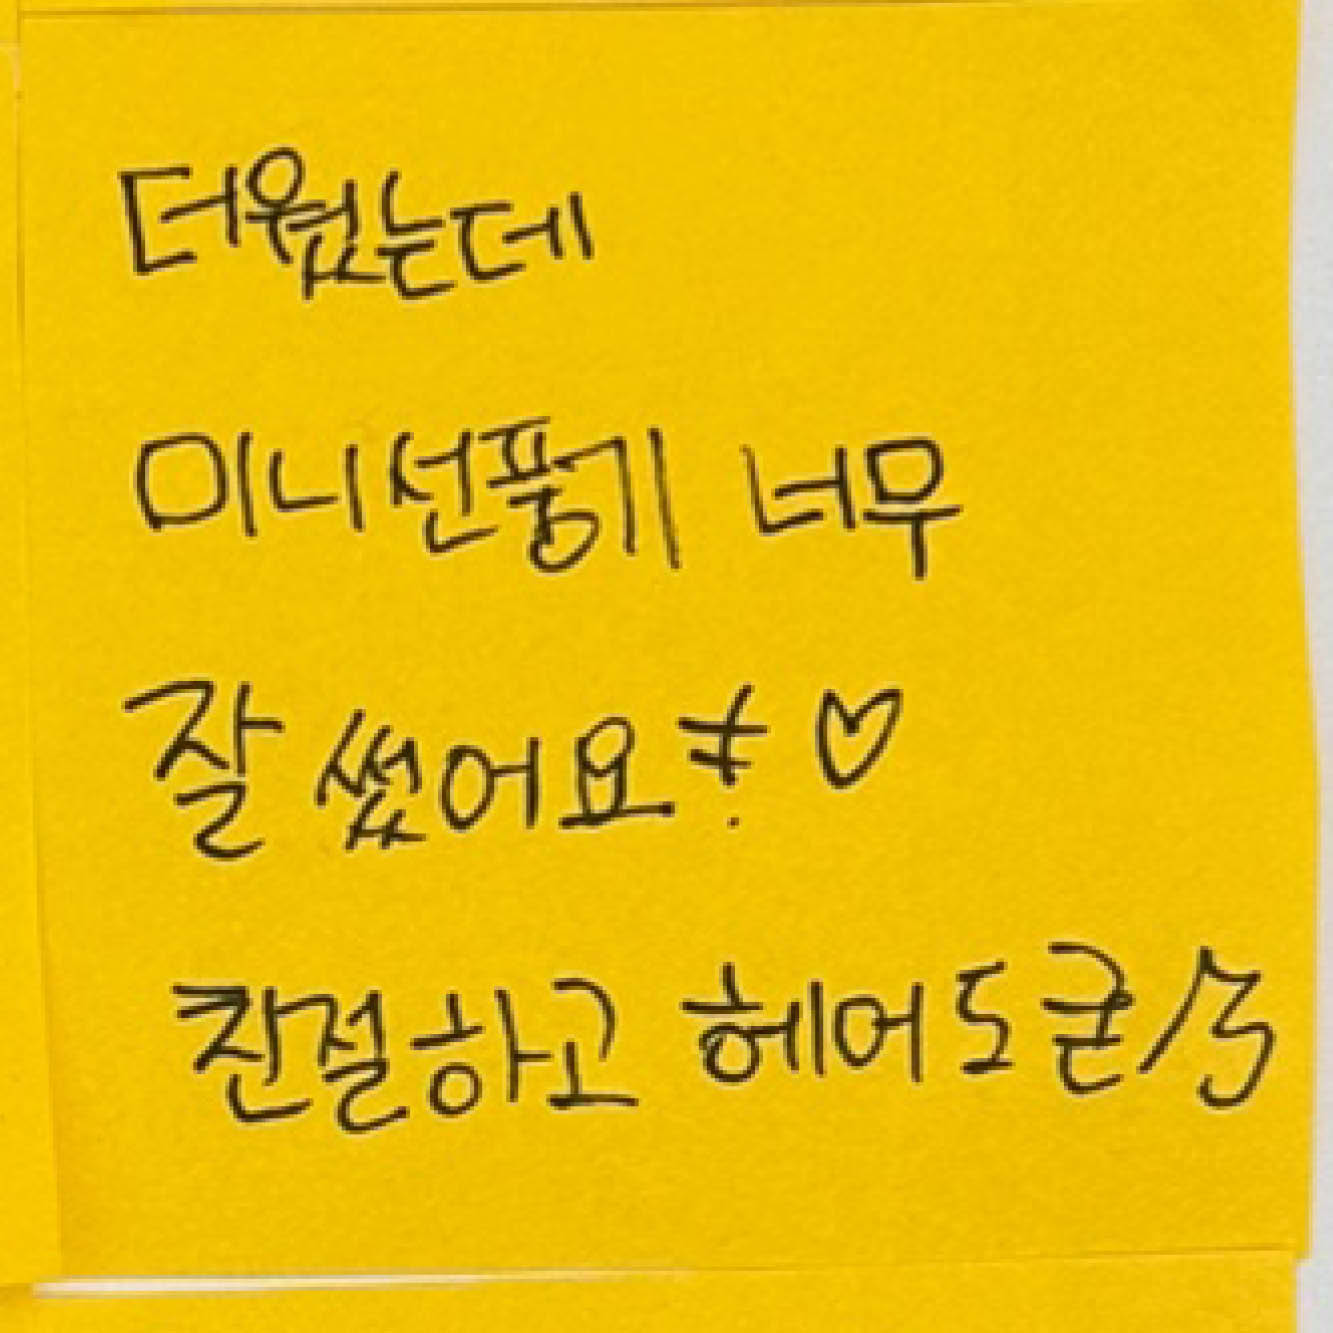 더웠는데
미니선풍기 너무
잘 썼어요! ♡
친절하고 헤어도 굳/